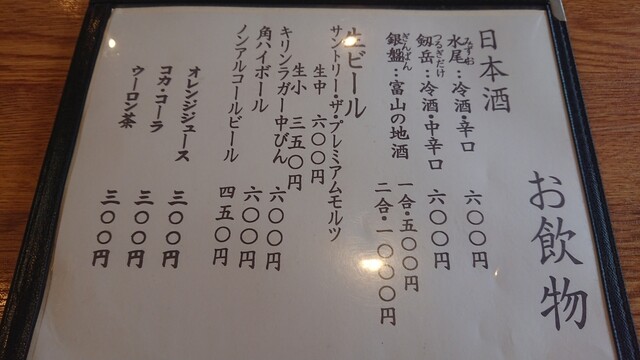 お飲物
日本酒
みずお
水尾：冷酒・辛口 六〇〇円
つるぎだけ
剱岳：冷酒・中辛口 六〇〇円
ぎんばん
銀盤：富山の地酒 一合・五〇〇円
二合・一〇〇〇円
生ビール
サントリー・ザ・プレミアムモルツ
生中 六〇〇円
生小 三五〇円
キリンラガー中びん 六〇〇円
角ハイボール 六〇〇円
ノンアルコールビール 四五〇円
オレンジジュース 三〇〇円
コカ・コーラ 三〇〇円
ウーロン茶 三〇〇円